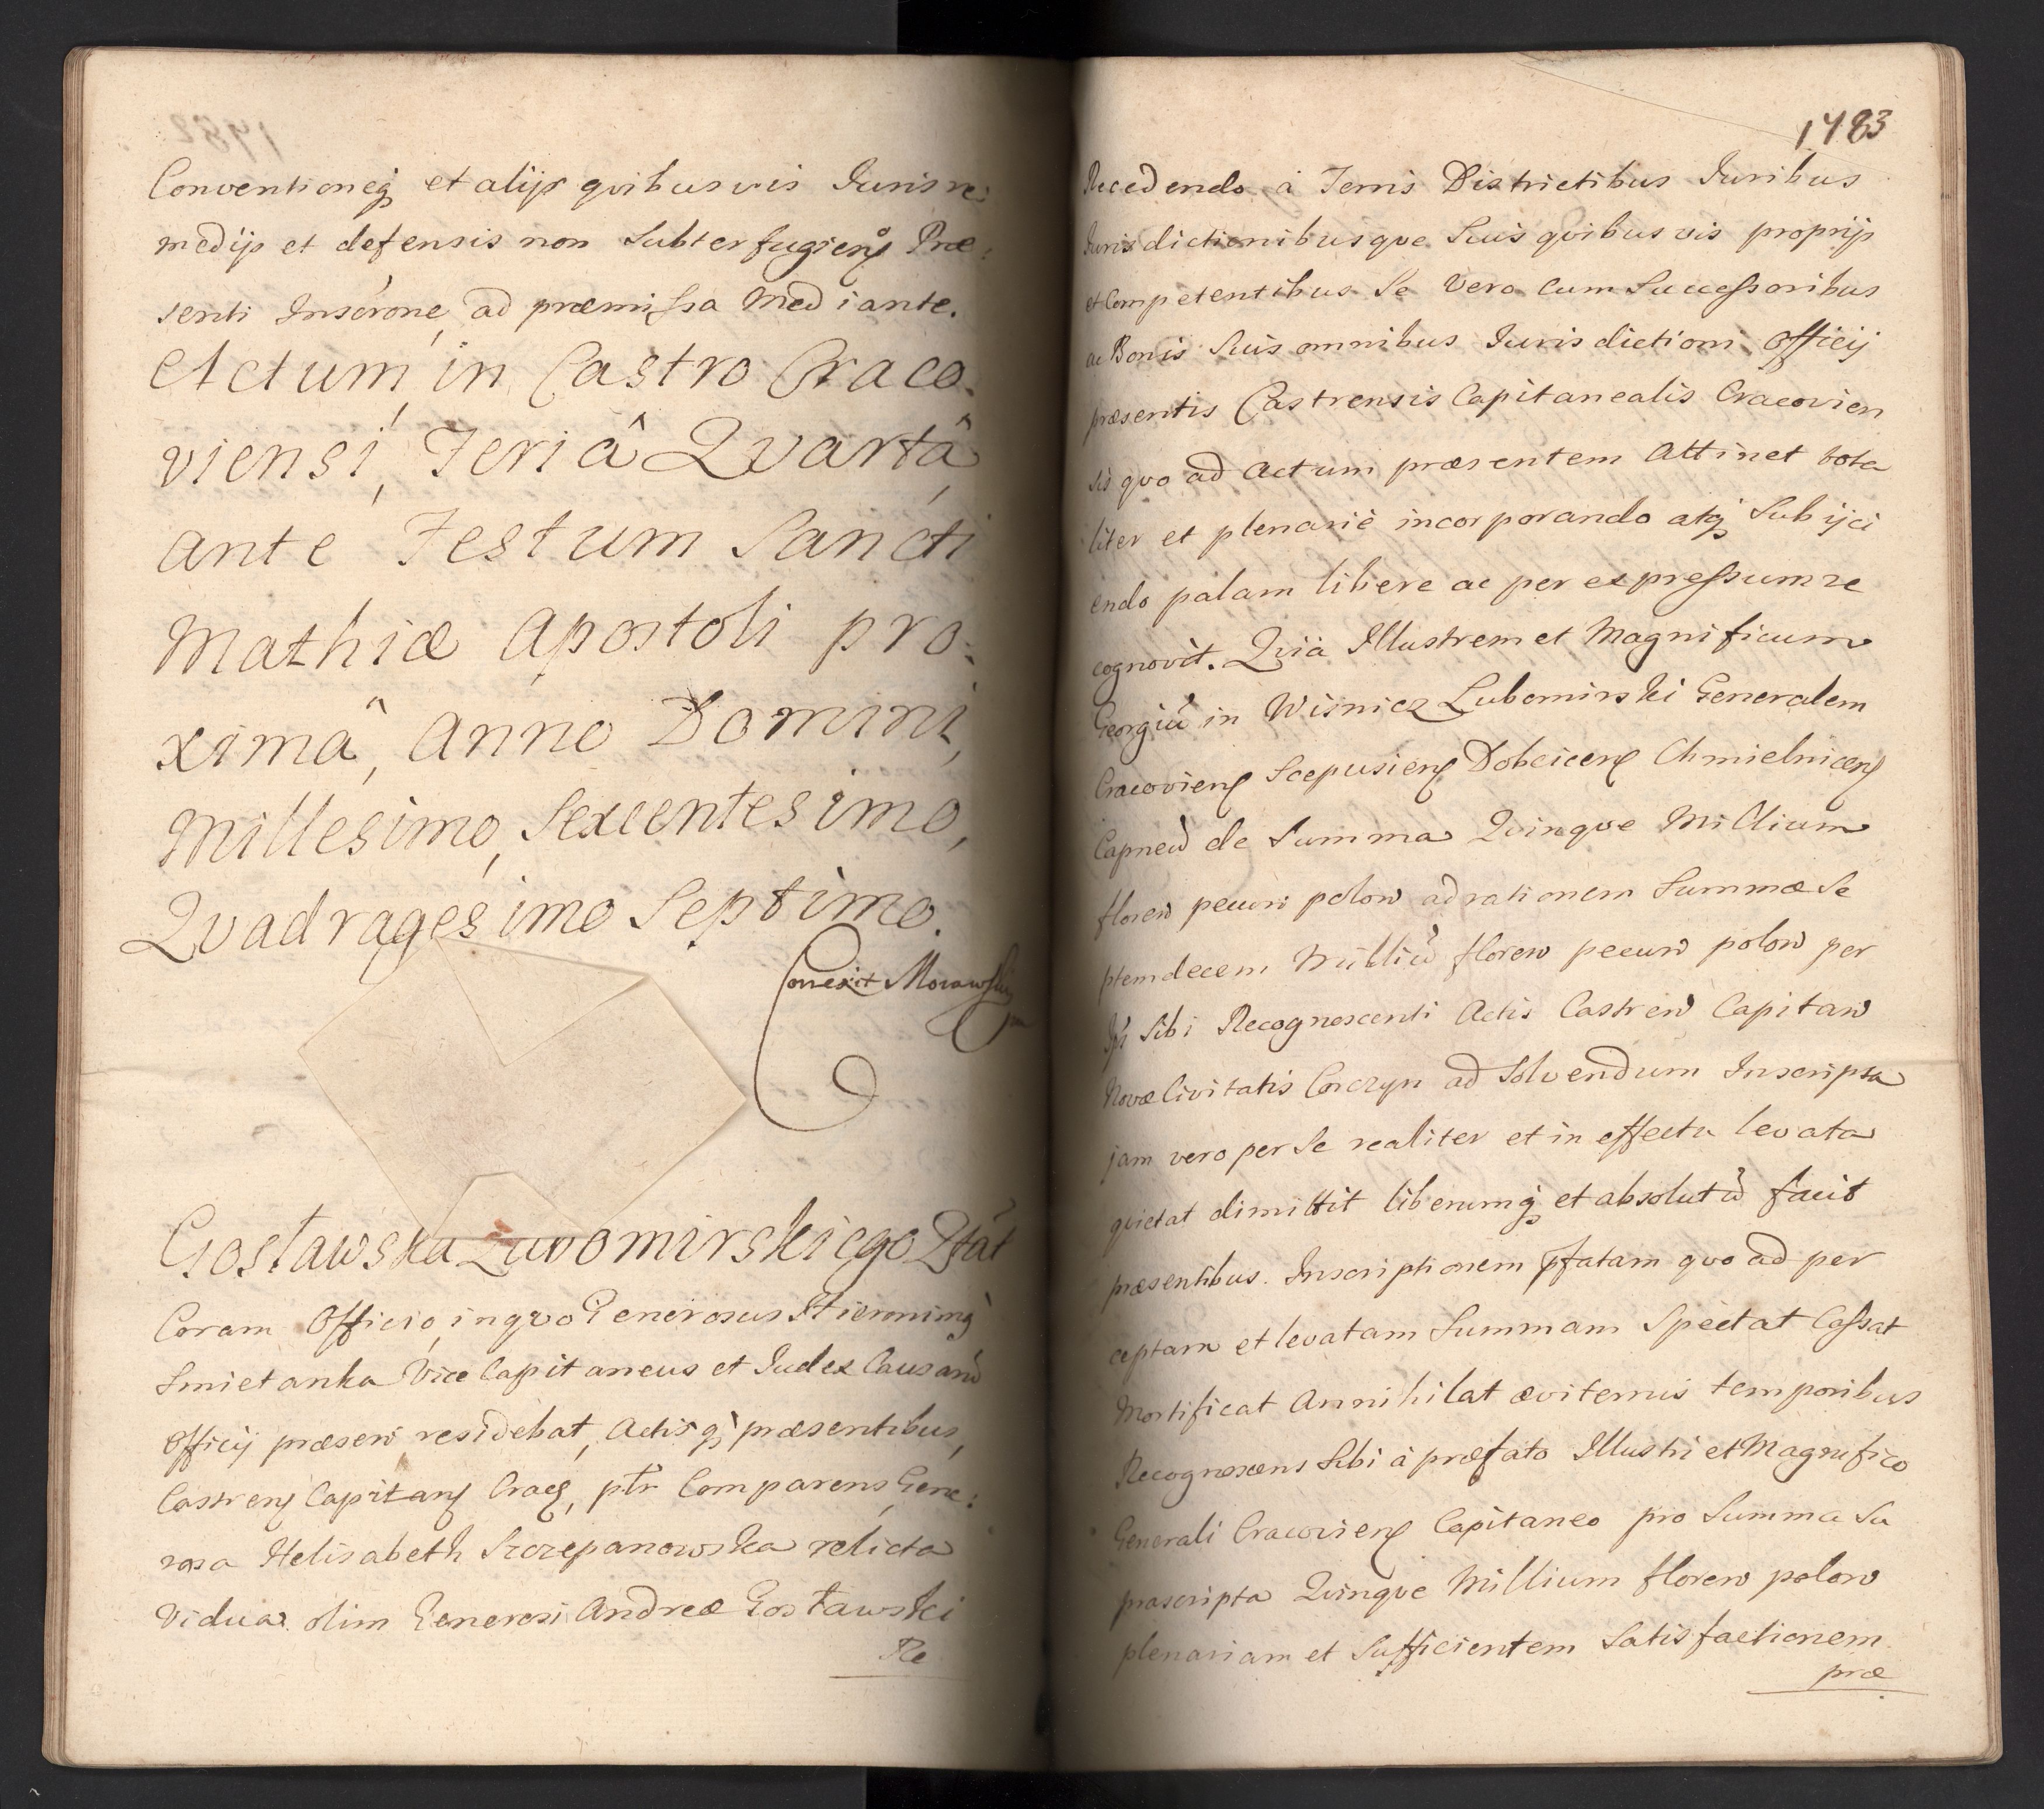 Conventioneq̃ et alijs qvibusvis Juris re:
medijs et defensis non Subterfugienς Præ:
senti Inscrõne ad præmissa Mediante.
Actum in Castro Craco.
viensi, Feriâ Qvartâ
ante Festum Sancti
Mathiæ Apostoli pro:
ximâ, Anno Domini,
Millesimo, Sexcentesimo,
Qvadragesimo Septimo.
Correxit Morawski
Gosławska Lubomirskiego Qtat
Coram Officio, in qvo Generosus Hieronimq̃
Smietanka Vice Capitaneus et Judex Causarũ
Officij præsen residebat, Actisq̃ præsentibus,
Castrenς Capitanς Cracς, ptr Comparens Gene:
rosa Helisabeth Szczepanowska relicta
Vidua olim Generosi Andreæ Gosławski
Re
1483
Recedendo à Terris Districtibus Juribus
Jurisdictionibusqve Suis qvibusvis proprijs
et Competentibus Se Vero cum Successoribus
ac Bonis Suis omnibus Jurisdictioni Officij
præsentis Castrensis Capitanealis Cracovien
sis qvo ad Actum præsentem Attinet tota
liter et plenariè incorporando atq̃ Subijci
endo palam libere ac per expressum re
cognovit. Qvia Illustrem et Magnificum
Georgiũ in Wisnicz Lubomirski Generalem
Cracovienς Scepusienς Dobcicenς Chmielnicenς
Capneũ de Summa Qvinqve Millium
floren pecun polon ad rationem Summæ Se
ptemdecem Milliũ floren pecun polon per
Ips Sibi Recognoscenti Actis Castren Capitan
Novæ Civitatis Corczyn ad Solvendum Inscripta
jam vero per Se realiter et in effectu levata
qvietat dimittit liberumq̃ et absolutũ facit
præsentibus. Inscriptionem pfatam qvo ad per
ceptam et levatam Summam Spectat Cassat
Mortificat Annihilat æviternis temporibus
Recognoscens Sibi à præfato Illustri et Magnifico
Generali Cracovienς Capitaneo pro Summa Su
prascripta Qvinqve Millium floren polon
plenariam et Sufficientem Satisfactionem
præ